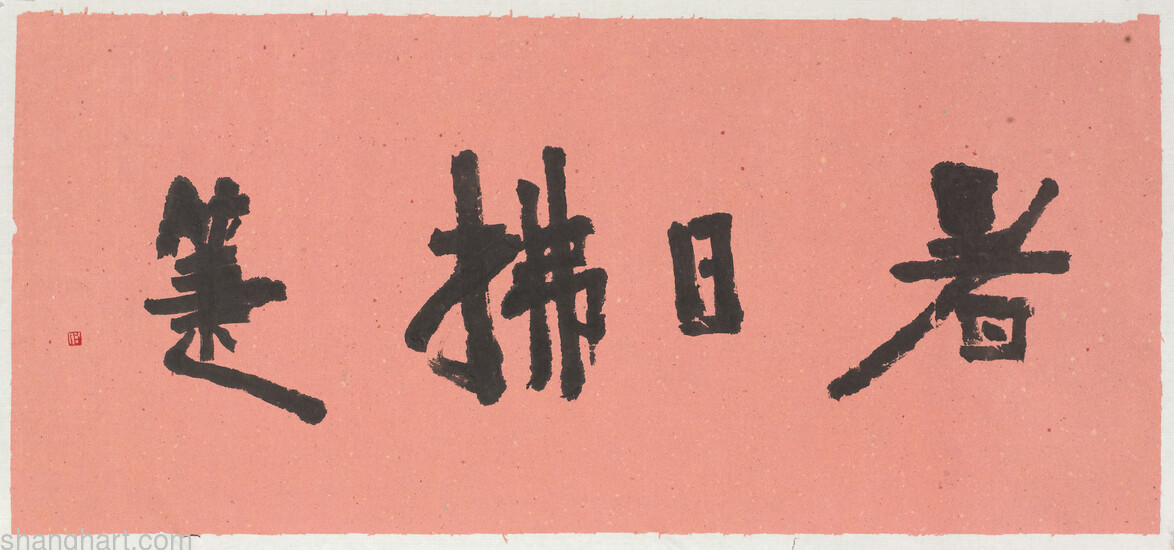 暑日拂箑
shanghart.com